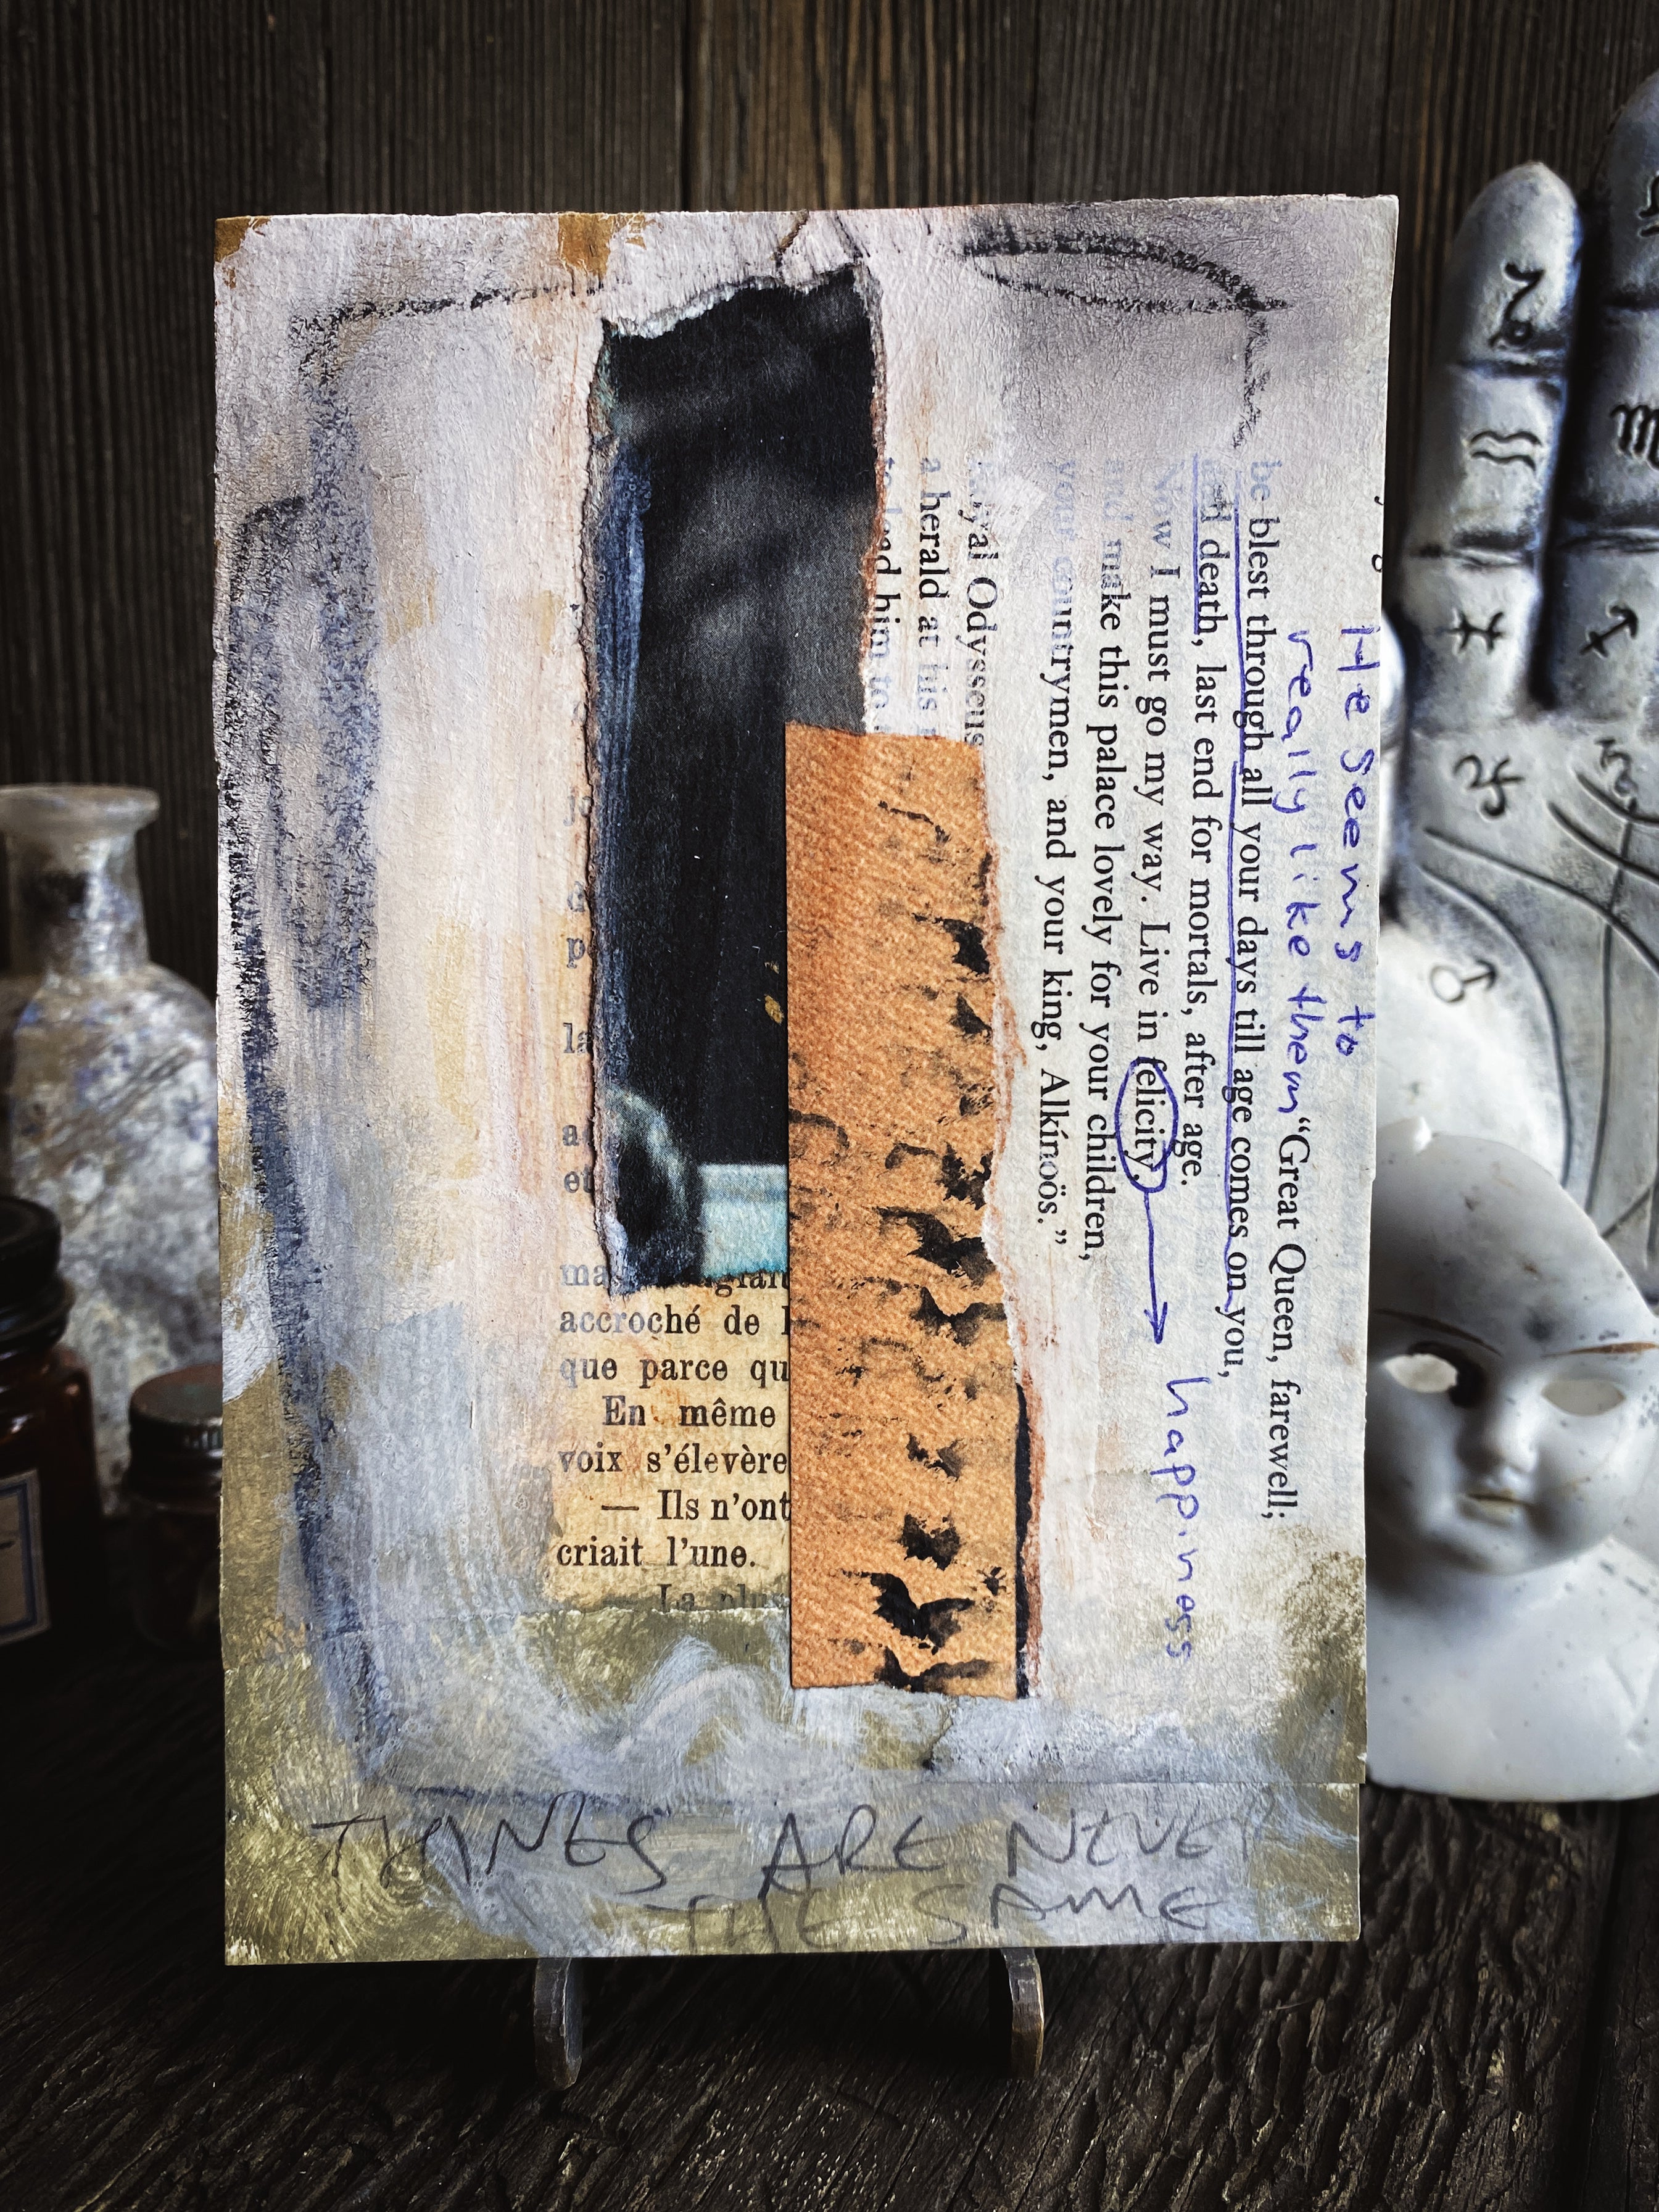 He seems to
really like them
“Great Queen, farewell;
be blest through all your days till age comes on you,
death, last end for mortals, after age.
Now I must go my way. Live in felicity,
happiness
and make this palace lovely for your children,
your countrymen, and your king, Alkínoös.”
Odysseus
a herald at his
to lead him to
la
et
accroché de
que parce qu
En même
voix s’élevère
— Ils n’ont
criait l’une.
— La plus
THINGS ARE NEVER
THE SAME